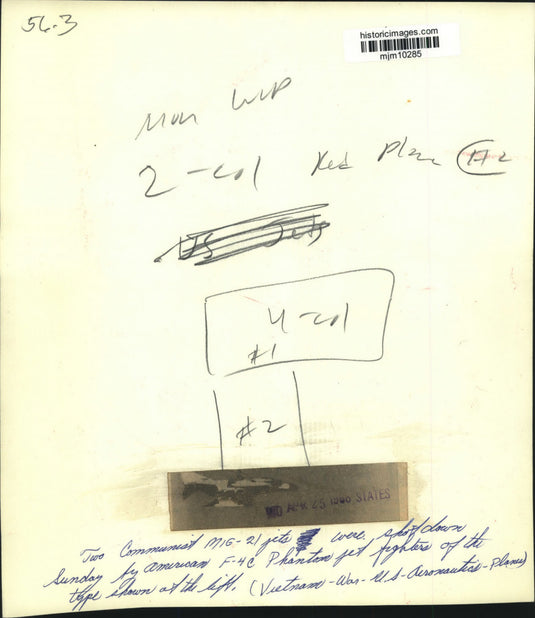 56-3
historicimages.com
mjm10285
Mon WUP
2-col Red Plane #2
US Jets
4-col
#1
#2
APR 25 1966 STATES
Two Communist MIG-21 jets were shot down
Sunday by American F-4C Phantom jet fighters of the
type shown at the left. (Vietnam-War-U.S-Aeronautics-Planes)